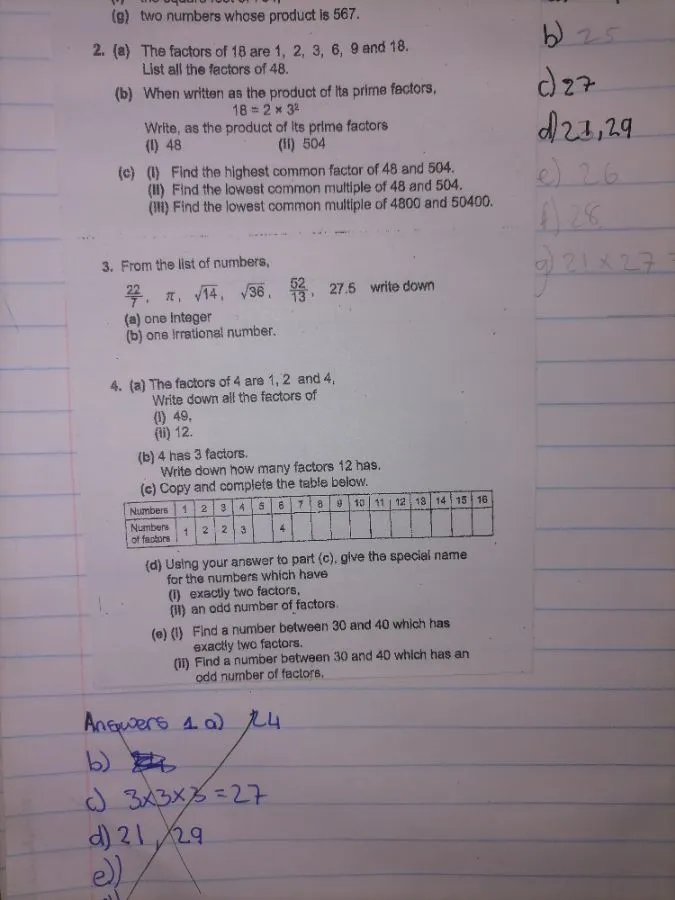 (g) two numbers whose product is 567.
2. (a) The factors of 18 are 1, 2, 3, 6, 9 and 18.
List all the factors of 48.
(b) When written as the product of its prime factors,
18 = 2 × 3²
Write, as the product of its prime factors
(i) 48 (ii) 504
(c) (i) Find the highest common factor of 48 and 504.
(ii) Find the lowest common multiple of 48 and 504.
(iii) Find the lowest common multiple of 4800 and 50400.
b) 25
c) 27
d) 21, 29
e) 26
f) 28
g) 21 × 27 =
3. From the list of numbers,
22/7, π, √14, √36, 52/13, 27.5 write down
(a) one integer
(b) one irrational number.
4. (a) The factors of 4 are 1, 2 and 4,
Write down all the factors of
(i) 49,
(ii) 12.
(b) 4 has 3 factors.
Write down how many factors 12 has.
(c) Copy and complete the table below.
Numbers 1 2 3 4 5 6 7 8 9 10 11 12 13 14 15 16
Numbers of factors 1 2 2 3 4
(d) Using your answer to part (c), give the special name
for the numbers which have
(i) exactly two factors,
(ii) an odd number of factors.
(e) (i) Find a number between 30 and 40 which has
exactly two factors.
(ii) Find a number between 30 and 40 which has an
odd number of factors.
Answers 1 a) 24
b)
c) 3×3×3 = 27
d) 21, 29
e))